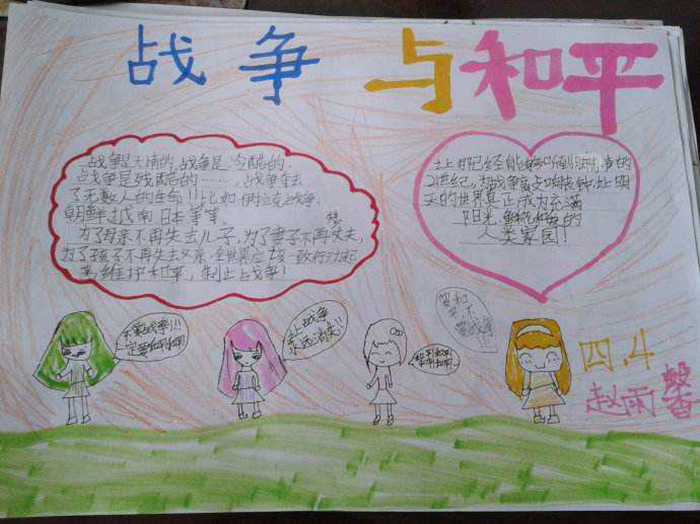 战争与和平
战争是无情的,战争是冷酷的,
战争是残酷的……,战争夺去
了无数人的生命!!比如伊拉克战争,
朝鲜越南日本等等。
为了母亲不再失去儿子,为了妻子不再丈夫,
为了孩子不再失去父亲,全世界应该一致行动起
来,维护和平,制止战争!
让
的
21世纪,为战争敲响丧钟,让明
天的世界真正成为充满
阳光 的
人类家园!
不要战争!!!
一定要和平和平
让战争
永远消失!!
要和
平不
要战争
四.4
赵雨馨